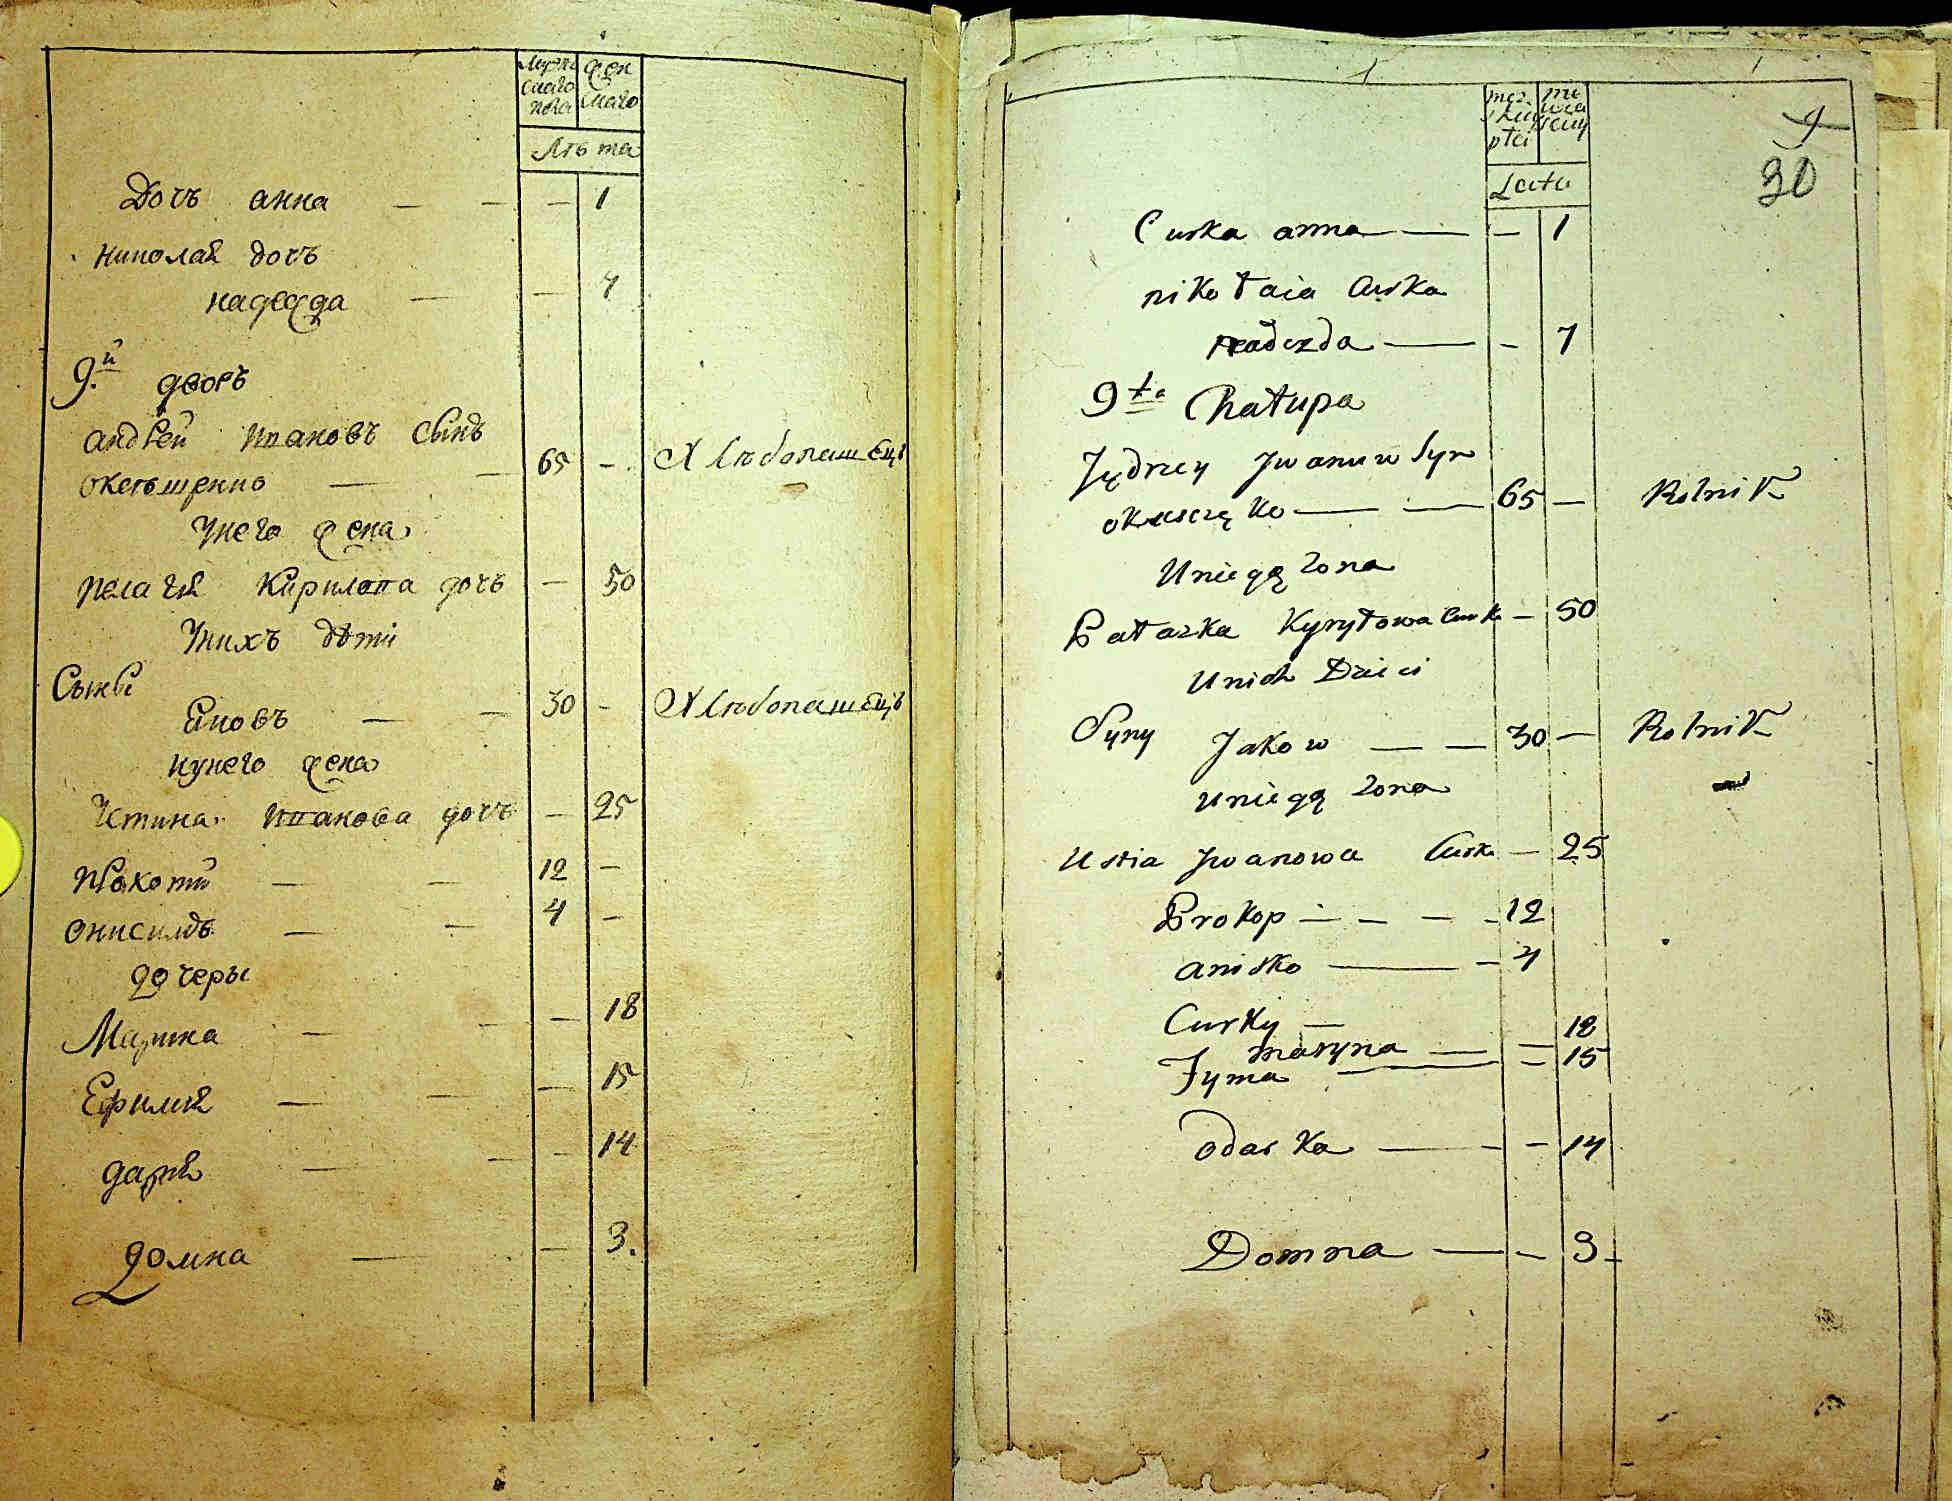 Мужескаго пола
Женскаго
Лѣта
Дочъ анна — — — 1
Николай дочъ
надежда — — 7
9.й дворъ
андрей Ивановъ Сынъ
65 — Хлѣбопашецъ
У него жена
Пелагея Кирилова дочъ — 50
У нихъ дѣти
Сыны
Яковъ — — 30 — Хлѣбопашецъ
и у него жена
Устина Иванова дочъ — 25
Прокопий — — 12 —
онисимъ — — 4 —
дочеры
Марина — — — 18
Ефимия — — — 15
дария — — — 14
домна — — 3.
męzkiey płci
Lata
9
30
Curka anna — — — 1
nikołaia Curka
nadezda — — 7
9ta Chałupa
Jędrzey Jwanuw Syn
okuszczęko — — 65 — Rolnik
U niegą zona
Pałazka Kyryłowa Curk — 50
U nich Dzieci
Syny Jakow — — 30 — Rolnik
U niegą zona
Ustia Jwanowa Curk — 25
Prokop — — — — 12
anisko — — 4
Curky —
maryna — — 18
Jyma — — 15
odarka — — — 14
Domna — — 3